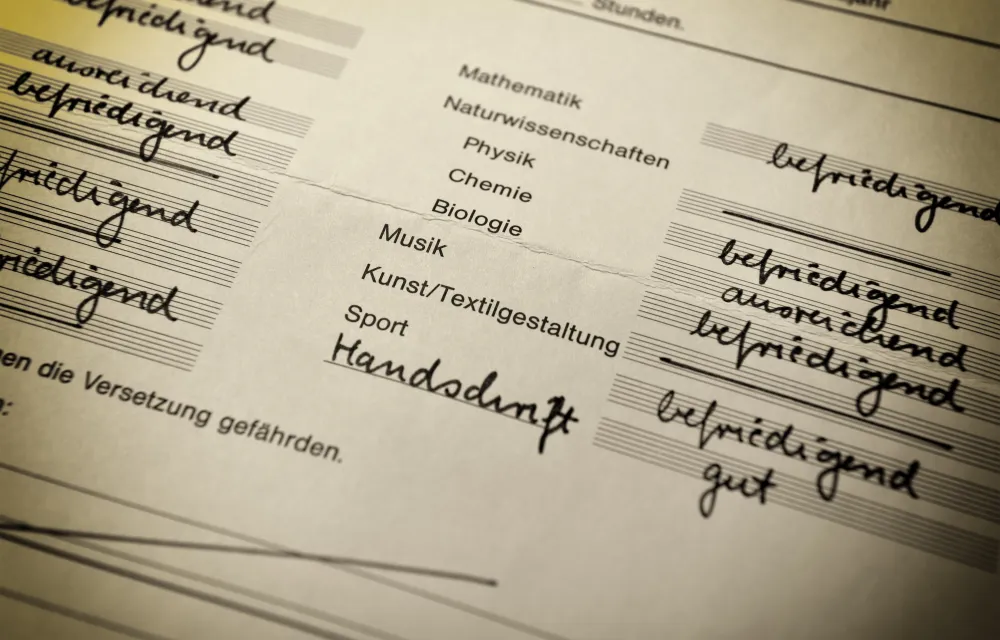 Stunden.
end
befriedigend
ausreichend
befriedigend
friedigend
riedigend
en die Versetzung gefährden.
Mathematik befriedigend
Naturwissenschaften
Physik befriedigend
Chemie ausreichend
Biologie befriedigend
Musik
Kunst/Textilgestaltung befriedigend
Sport gut
Handschrift